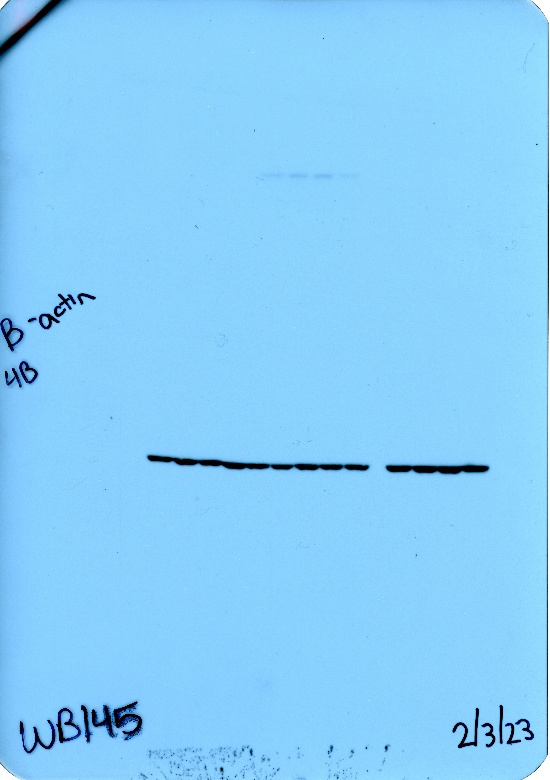 B-actin
4B
WB145
2/3/23